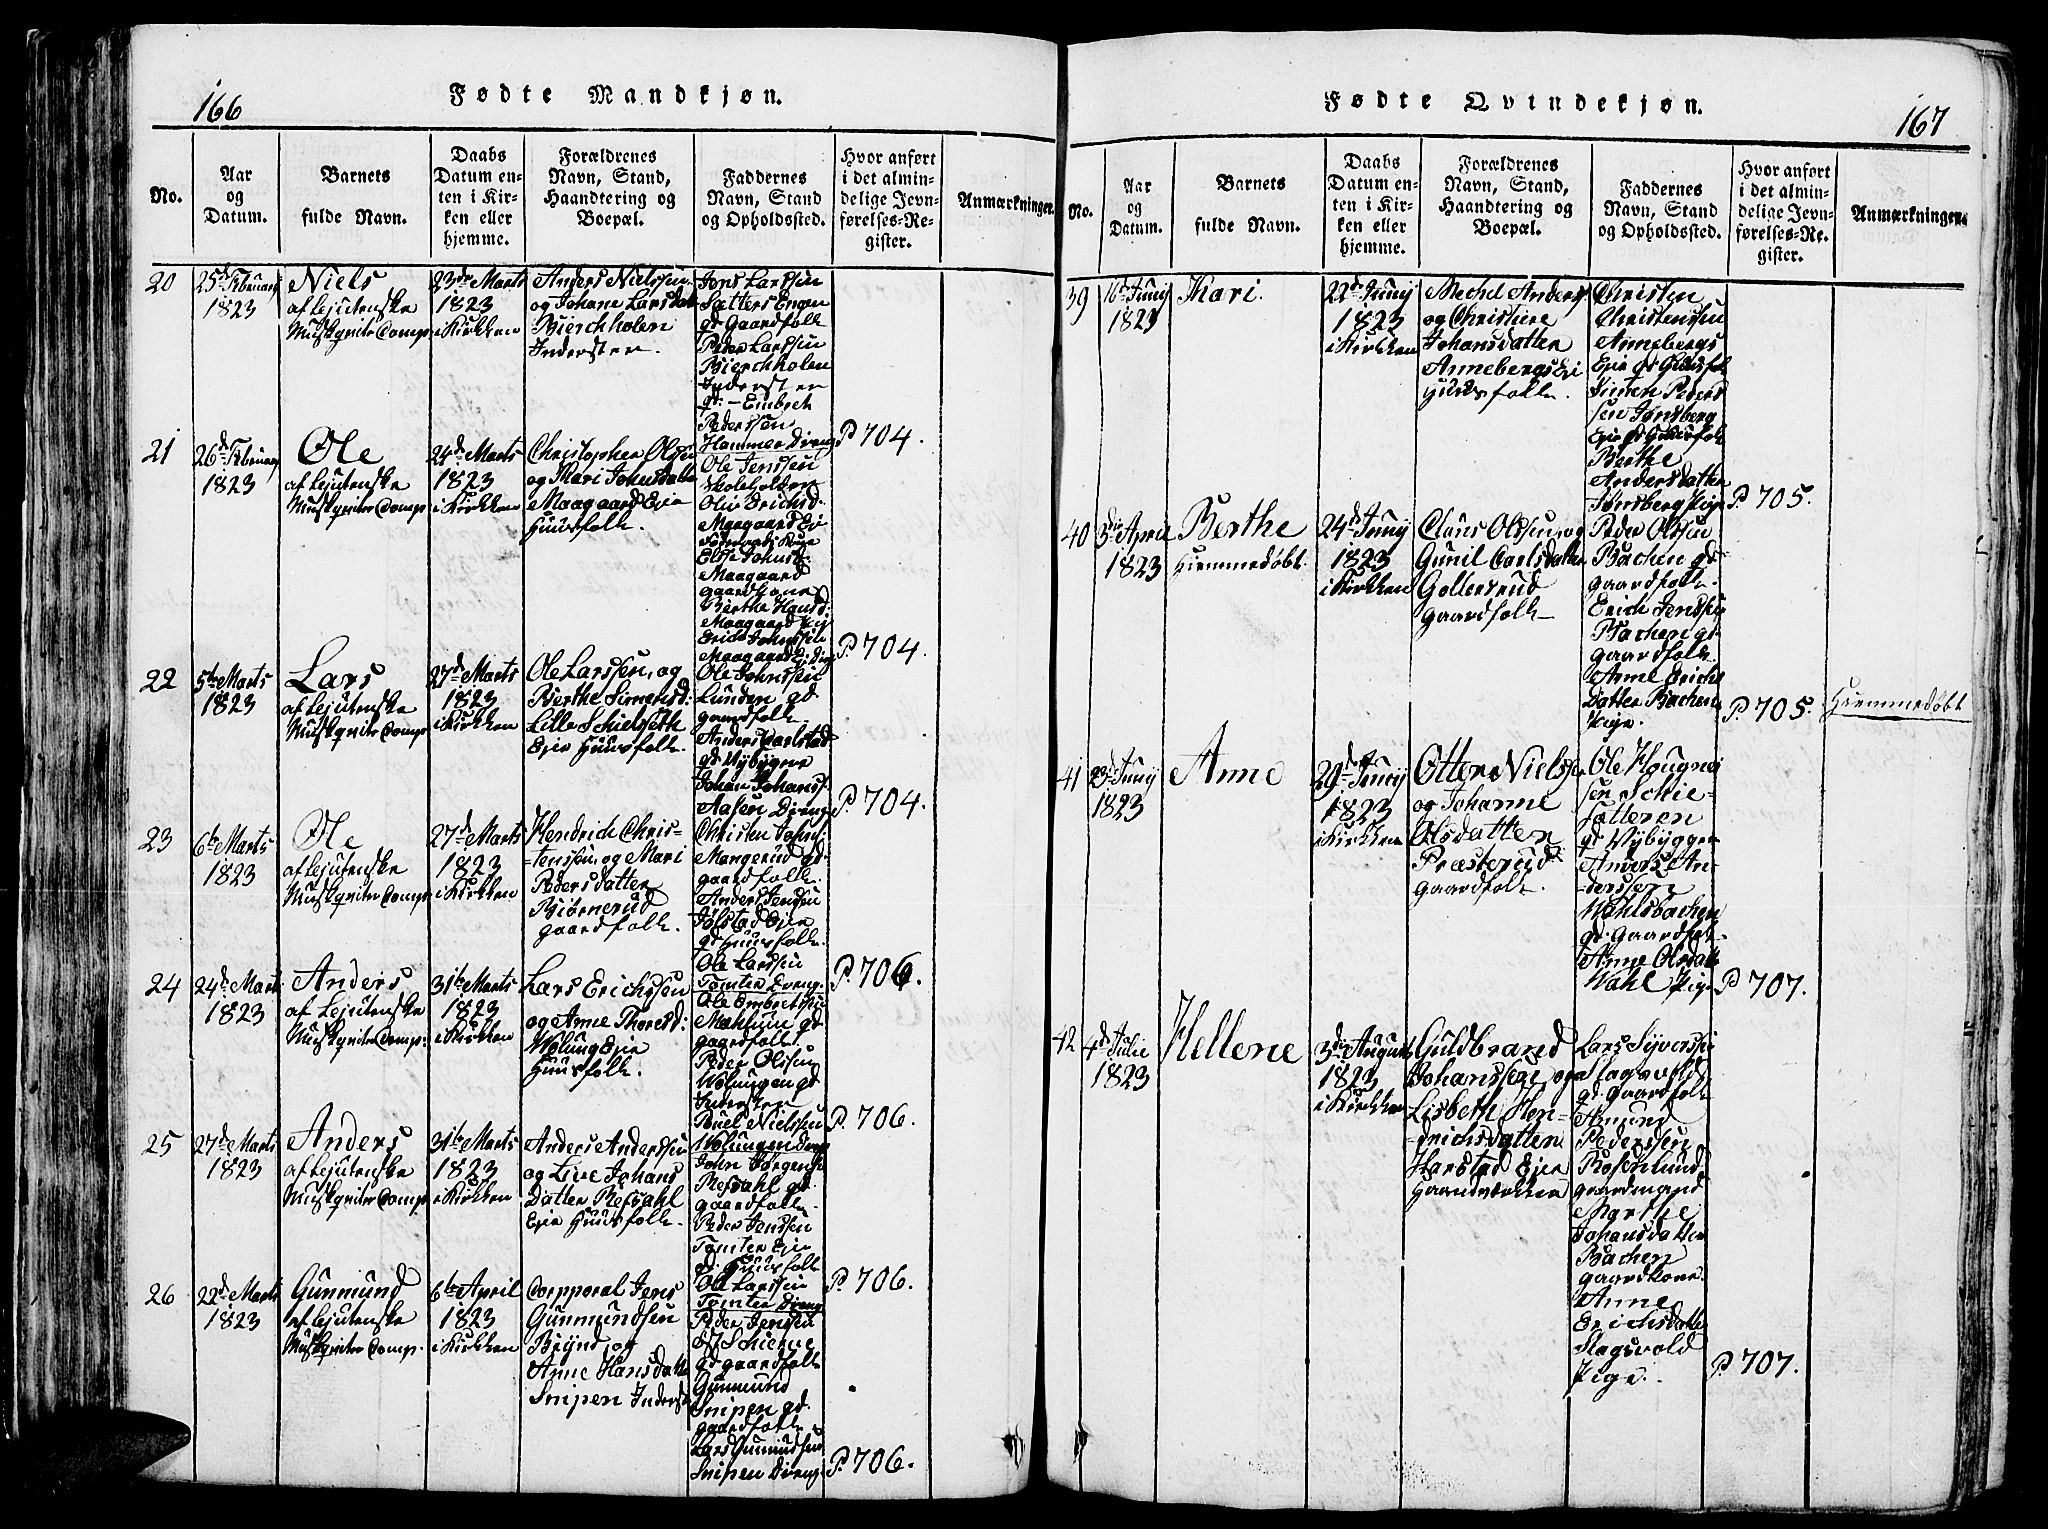 166
Fødte Mandkjøn.
No.
Aar
og
Datum.
Barnets
fulde Navn.
Daabs
Datum en-
ten i Kir-
ken eller
hjemme.
Forældrenes
Navn, Stand,
Haandtering og
Boepæl.
Faddernes
Navn, Stand
og Opholdssted.
Hvor anført
i det almin-
delige Jevn-
førelses-Re-
gister.
Anmærkninger.
20
25de Februar
1823
Niels
af Lejutenske
Musk Comp
23de Marts
1823
i Kirken
Anders Nielssen
og Johane Larsdatt
Bierchholen
Inderster.
Jens Larssen
Sætters Engen
gd Gaardfolk
Peder Larssen
Bierchholen
Inderster
gd: Embret
Pederssen
Hammer Dreng
P. 704.
21
26de Februar
1823
Ole
af Lejutenske
Musk Comp
24de Marts
1823
i Kirken
Christopher Olssen
og Mari Johnsdatter
Maagaard Ejer
Huusfolk.
Ole Jenssen
Skoleholder
Oliv Erichsd.
Maagaard Ej
Elsse Johnsd:
Maagaard
gaardkone
Berthe Hansd:
Maagaard Pig
Erich Johnssen
Maagaard Ej Dreng
P. 704.
22
5te Marts
1823
Lars
af Lejutenske
Musk Comp
27de Marts
1823
i Kirken
Ole Larssen, og
Berthe Simensd:
Lille Schielseth
Ejer Huusfolk.
Ole Johnssen
Lunden gd
gaardfolk
Anders Carlstad
gd Nybygger
Johan Johanss.
Aasen Dreng
P. 704.
23
6te Marts
1823
Ole
af Lejutenske
Musk Comp
27de Marts
1823
i Kirken
Hendrich Chris-
-tenssen, og Mari
Pedersdatter
Biørnerud
gaardfolk.
Christen Johns:
Mangerud gd
gaardfolk.
Anders Jenssen
Jølstad Ejer
gd Huusfolk.
Ole Larssen
Tomter Dreng
P. 706.
24
24de Marts
1823
Anders
af Lejutenske
Musk Comp:
31te Marts
1823
i Kirken
Lars Erichssen
og Anne Thoresd:
Wolung Ejer
Huusfolk.
Ole Embretssen
Mæhlum gd
gaardfolk
Peder Olssen
Wolungen gd
Inderster
Poul Nielssen
Wolungen Dreng
P. 706.
25
27de Marts
1823
Anders
af Lejutenske
Musk Comp
31te Marts
1823
i Kirken
Anders Anderssen
og Live Johans
Datter Resdahl
Ejer Huusfolk.
John Jørgens
Resdahl gd.
gaardfolk.
Peder Jenssen
Tomter Ejer
gd. Huusfolk
Ole Larssen
Tomter Dreng
P. 706.
26
22de Marts
1823
Gunmund
af Lejutenske
Musk Comp.
6te April
1823
i Kirken
Corpporal Jens
Gunmundsen
Brynd, og
Anne Hansdatt
Snipen Inderst
Peder Jenssen
Schierne
gd gaardfolk
Gunmund
Snipen gd.
gaardfolk
Lars Gunmundsen
Snipen Dreng
P. 706.
167
Fødte Qvindekjøn.
No.
Aar
og
Datum.
Barnets
fulde Navn.
Daabs
Datum en-
ten i Kir-
ken eller
hjemme.
Forældrenes
Navn, Stand,
Haandtering og
Boepæl.
Faddernes
Navn, Stand
og Opholdssted.
Hvor anført
i det almin-
delige Jevn-
førelses-Re-
gister.
Anmærkninger.
39
16de Junij
1823
Kari.
22de Junij
1823
i Kirken
Mechel Anders
og Christine
Johansdatter
Annebergs Ei
Huusfolk.
Christen
Christenssen
Annebergs
Ejer gd Huusfolk
Simen Peders
sen Tønsberg
Ejer gd Huusfolk
Berthe
Andersdatter
Tønsberg Pige
P. 705.
40
5de April
1823
Berthe
Hiemmedøbt.
24de Junij
1823
i Kirken
Claus Olssen, og
Gunil Carlsdatter
Gollersrud
gaardfolk
Peder Olssen
Bachen gd
gaardfolk.
Erich Jenssen
Bachen gd
gaardfolk
Anne Erichs
Datter Bachen
Pige.
P. 705.
Hiemmedøbt
41
23de Junij
1823
Anne
29de Junij
1823
i Kirken
Otter Nielssen
og Johanne
Olsdatter
Præsterud
gaardfolk.
Ole Hougne
sen Schie-
sætteren
gd Nybygger
Anders An-
-derssen
Wahlsbachen
gd. gaardfol-
Anne Olsdatt
Wahl Pige
P. 707.
42
4de Julie
1823
Hellene
3die August
1823
i Kirken
Guldbrand
Johanssen og
Lisbeth Hen-
-drichsdatter
Harstad Ejer
Haandværker
Lars Syverss
Slagsvold
gd gaardfolk
Amund
Pederssen
Rosenlund
gaardmand
Marthe
Johansdatter
Bachen
gaardkone.
Anne
Erichsdatt
Slagsvold
Pige.
P. 707.